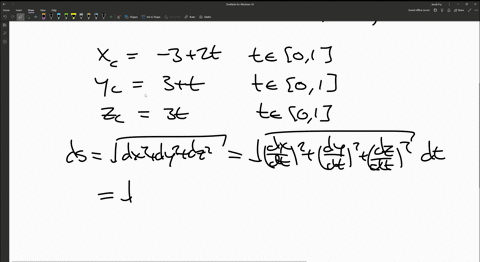 x_c = -3+2t   t∈[0,1]
y_c = 3+t   t∈[0,1]
z_c = 3t   t∈[0,1]
ds = √(dx²+dy²+dz²) = √((dx/dt)²+(dy/dt)²+(dz/dt)²) dt
= √